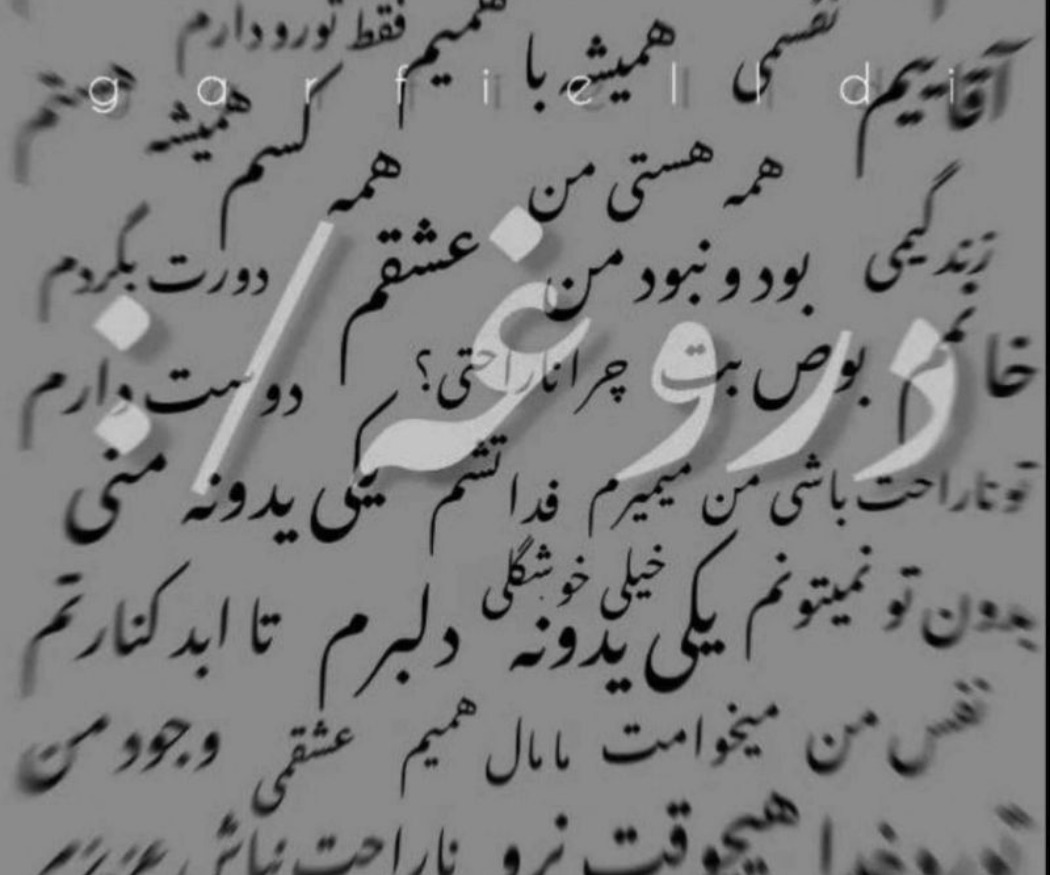 همیم فقط تورو دارم
آقاییم نفسمی همیشه با
garfielldi
همه هستی من همه کسم همیشه
زندگیمی بود و نبود من عشقم دورت بگردم
خانمم بوص بت چرا ناراحتی؟ دوست دارم
دروغه/:
تو ناراحت باشی من میمیرم فدا تشم یکی یدونه منی
بدون تو نمیتونم یکی یدونه خیلی خوشگلی دلبرم تا ابد کنارتم
نفس من میخوامت مامال همیم عشقمی وجود من
تورو خدا هیچوقت نرو ناراحت نباش عزیزم